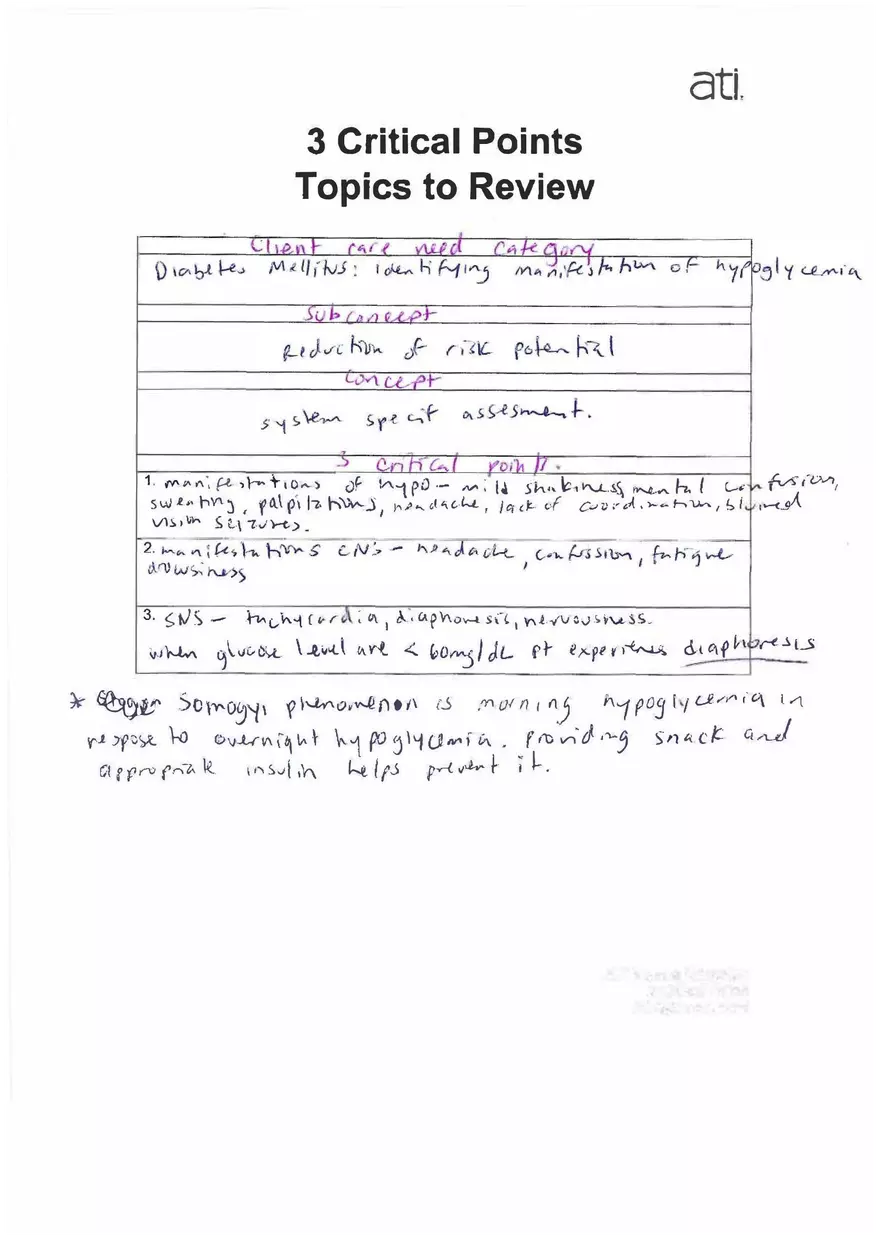 ati
3 Critical Points
Topics to Review
Client care need Category
Diabetes Mellitus: identifying manifestation of hypoglycemia
Subconcept
Reduction of risk potential
Concept
system specif assesment.
3 Critical point
1. manifestations of hypo - mild shakiness, mental confusion,
sweating, palpitations, headache, lack of coordination, blurred
vision seizures.
2. manifestations CNS - headache, confussion, fatigue
drowsiness
3. SNS - tachycardia, diaphoresis, nervousness.
when glucose level are < 60mg/dL pt experiences diaphoresis
* Somogyi phenomenon is morning hypoglycemia in
respose to overnight hypoglycemia. Providing snack and
appropriate insulin helps prevent it.